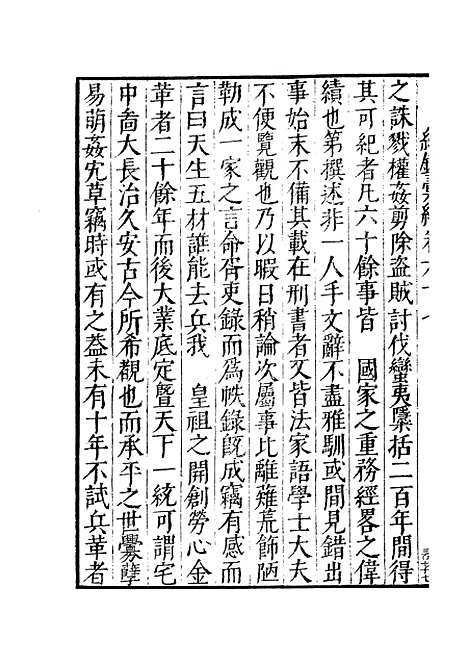 之誅戮權姦剪除盜賊討伐蠻夷櫽括二百年間得
其可紀者凡六十餘事皆　國家之重務經畧之偉
績也第撰述非一人手文辭不盡雅馴或間見錯出
事始末不備其載在刑書者又皆法家語學士大夫
不便覽觀也乃以暇日稍論次屬事比離薙荒飾陋
勒成一家之言命胥吏錄而爲帙錄旣成竊有感而
言曰天生五材誰能去兵我　皇祖之開創勞心金
革者二十餘年而後大業底定曁天下一統可謂宅
中啇大長治久安古今所希覩也而承平之世釁孽
易萌姦宄草竊時或有之葢未有十年不試兵革者